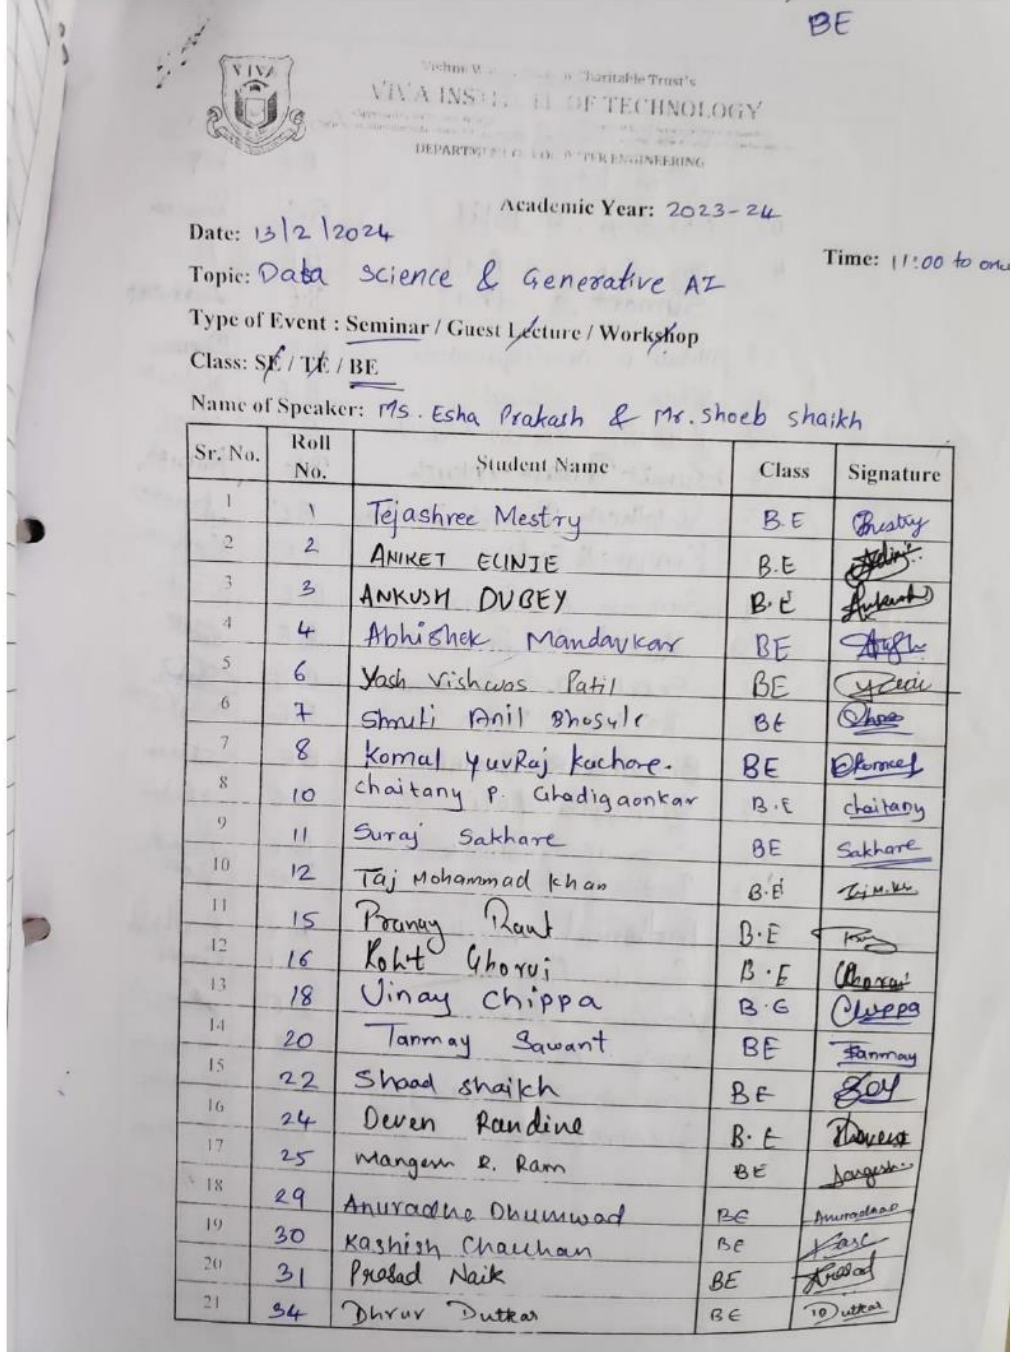 BE
VIVA
Charitable Trust's
VIVA OF TECHNOLOGY
ENGINEERING
Academic Year: 2023-24
Date: 13/2/2024
Time: 11:00 to
Topic: Data Science & Generative AI
Type of Event : Seminar / Guest Lecture / Workshop
Class: SE / TE / BE
Name of Speaker: Ms. Esha Prakash & Mr. Shoeb Shaikh
Sr. No. Roll No. Student Name Class Signature
1 1 Tejashree Mestry B.E
2 2 ANIKET ELINJE B.E
3 3 ANKUSH DUBEY B.E Ankush
4 4 Abhishek Mandavkar BE
5 6 Yash Vishwas Patil BE
6 7 Shruti Anil Bhosule BE
7 8 Komal YuvRaj Kachore. BE
8 10 Chaitany P. Ghadigaonkar B.E chaitany
9 11 Suraj Sakhare BE Sakhare
10 12 Taj Mohammad Khan B.E
11 15 Pranay Raut B.E
12 16 Rohit Ghorui B.E
13 18 Vinay Chippa B.E Chippa
14 20 Tanmay Sawant BE Tanmay
15 22 Shaad Shaikh BE
16 24 Deven Randive B.E
17 25 Mangesh R. Ram BE
18 29 Anuradha Dhumwad BE
19 30 Kashish Chauhan BE
20 31 Prasad Naik BE Prasad
21 34 Dhruv Dutkar BE Dutkar